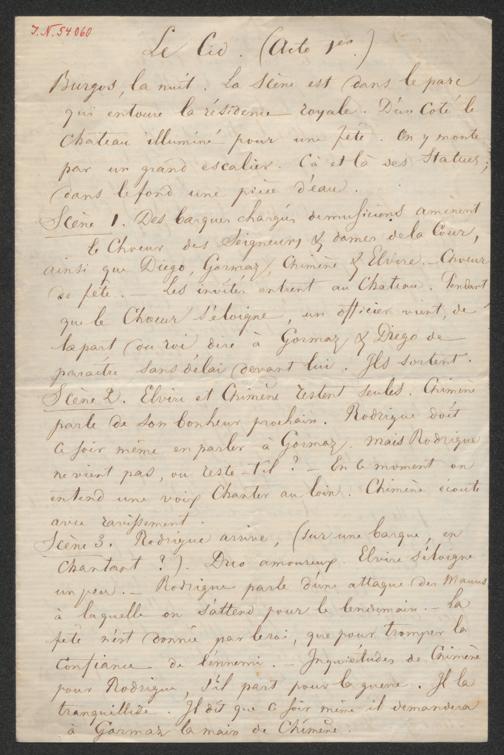 I.N. 54060
Le Cid. (Acte 1er.)
Burgos, la nuit. La Scène est dans le parc
qui entoure la résidence royale. D'un Coté le
Chateau illuminé pour une fête. On y monte
par un grand escalier. Cà et là des Statues;
dans le fond une pièce d'eau.
Scène 1. Des barques chargés de musiciens amènent
le Choeur des Seigneurs & dames de la Cour,
ainsi que Diego, Gormaz, Chimène & Elvire. — Choeur
de fête. — Les invités entrent au Chateau. Pendant
que le Choeur s'éloigne, un officier vient, de
la part du roi dire à Gormaz & Diego de
paraitre sans délai devant lui. Ils sortent.
Scène 2. Elvire et Chimène restent seules. Chimène
parle de son bonheur prochain. Rodrigue doit
ce soir même en parler à Gormaz. mais Rodrigue
ne vient pas, ou reste-t-il? — En ce moment on
entend une voix Chanter au loin. Chimène écoute
avec ravissement.
Scène 3. Rodrigue arrive, (sur une barque, en
Chantant?). Duo amoureux. Elvire s'éloigne
un peu. — Rodrigue parle d'une attaque des Maures
à laquelle on s'attend pour le lendemain. — La
fête n'est donnée par le roi, que pour tromper la
Confiance de l'ennemi. Inquiétudes de Chimène
pour Rodrigue, s'il part pour la guerre. Il la
tranquillise. Il dit que ce soir même il demandera
à Gormaz la main de Chimène.